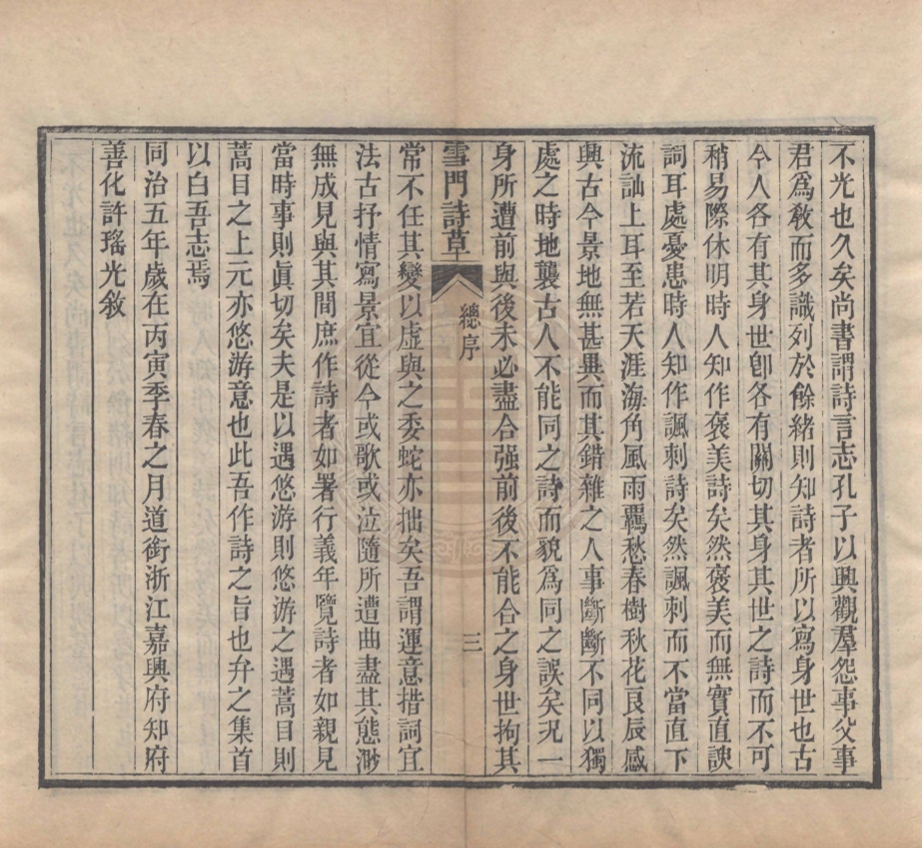 不光也久矣尚書謂詩言志孔子以興觀羣怨事父事
君爲敎而多識列於餘緒則知詩者所以寫身世也古
今人各有其身世卽各有關切其身其世之詩而不可
稍易際休明時人知作褒美詩矣然褒美而無實直諛
詞耳處憂患時人知作諷刺詩矣然諷刺而不當直下
流訕上耳至若天涯海角風雨羈愁春樹秋花良辰感
興古今景地無甚異而其錯雜之人事斷斷不同以獨
處之時地襲古人不能同之詩而貌爲同之誤矣况一
身所遭前與後未必盡合强前後不能合之身世拘其
雪門詩草 總序 三
常不任其變以虛與之委蛇亦拙矣吾謂運意措詞宜
法古抒情寫景宜從今或歌或泣隨所遭曲盡其態渺
無成見與其間庶作詩者如署行義年覽詩者如親見
當時事則眞切矣夫是以遇悠游則悠游之遇蒿目則
蒿目之上元亦悠游意也此吾作詩之旨也弁之集首
以白吾志焉
同治五年歲在丙寅季春之月道銜浙江嘉興府知府
善化許瑤光敘